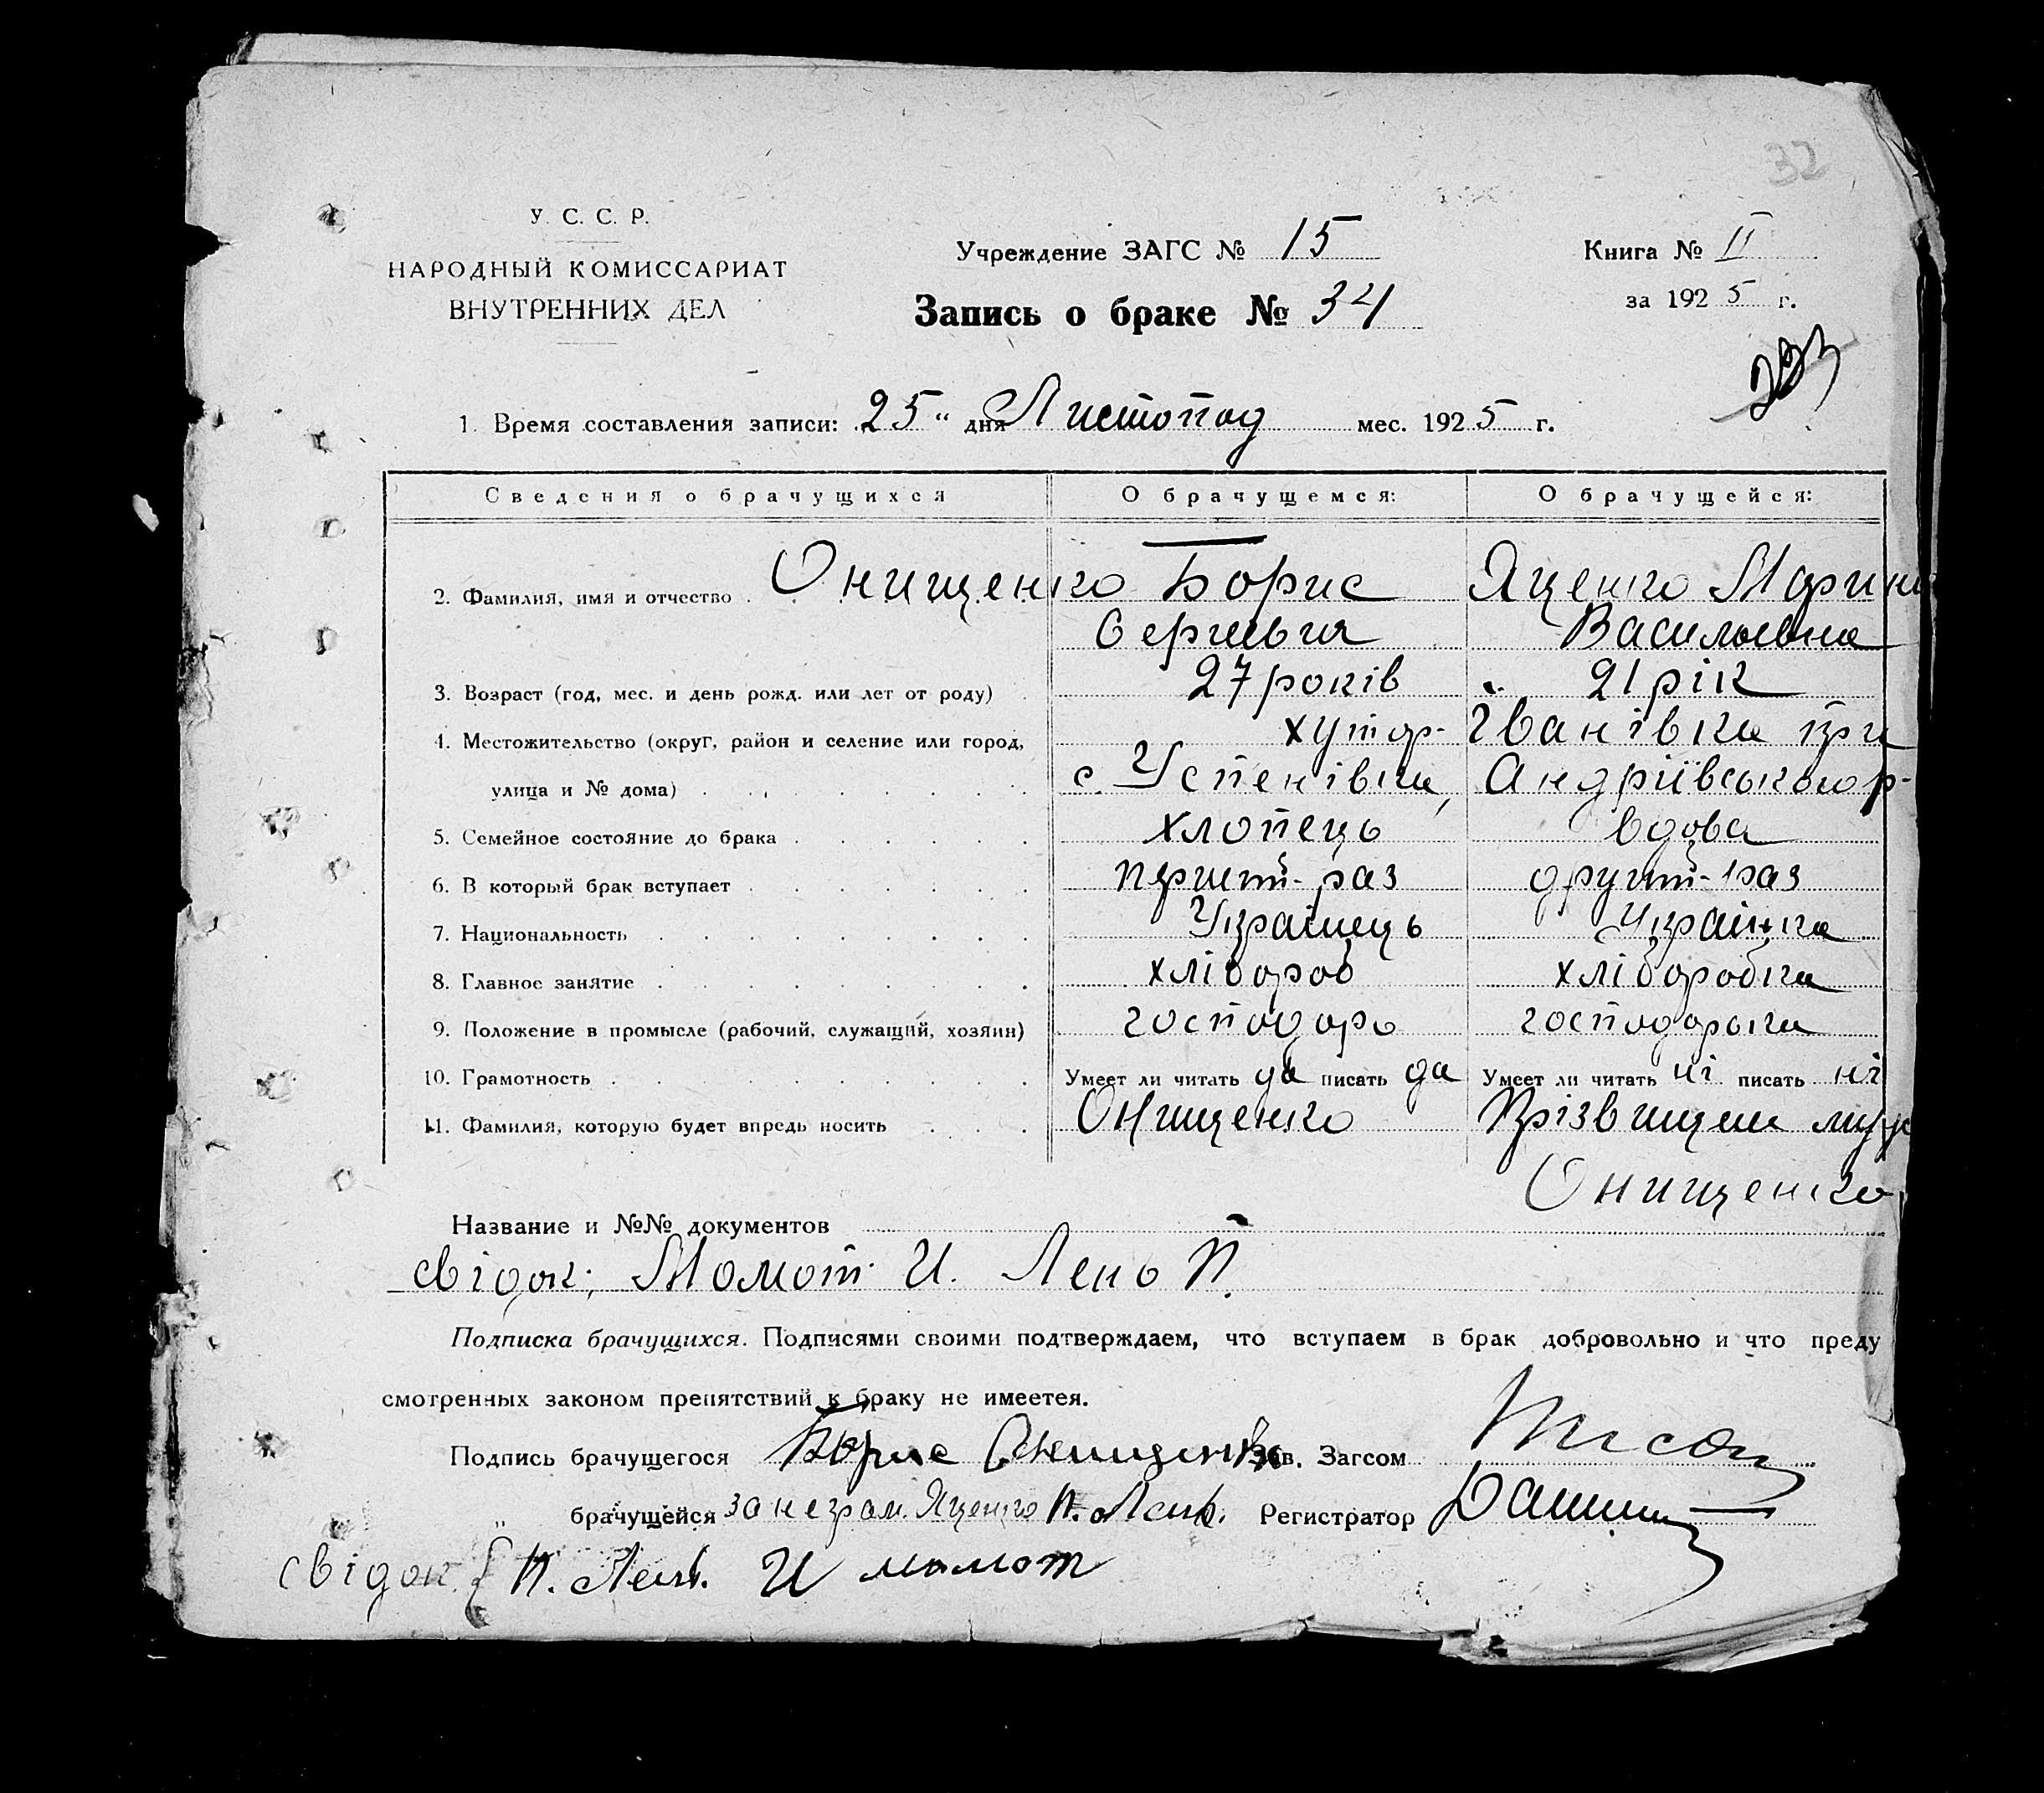 32
У. С. С. Р.
НАРОДНЫЙ КОМИССАРИАТ
ВНУТРЕННИХ ДЕЛ
Учреждение ЗАГС № 15
Запись о браке № 34
Книга № II
за 1925 г.
1. Время составления записи: 25 " дня Листопад мес. 1925 г.
Сведения о брачущихся О брачущемся: О брачущейся:
2. Фамилия, имя и отчество Онищенко Борис Яценко Марин
Васильевна
3. Возраст (год, мес. и день рожд. или лет от роду) 27 років 21 рік
4. Местожительство (округ, район и селение или город, хутор- Іванівка при
улица и № дома) с. Успенівка, Андріївського р-
5. Семейное состояние до брака хлопець вдова
6. В который брак вступает перший-раз другий-раз
7. Национальность Українець Українка
8. Главное занятие хлібороб хліборобка
9. Положение в промысле (рабочий, служащий, хозяин) господарь господарька
10. Грамотность Умеет ли читать да писать да Умеет ли читать ні писать ні
11. Фамилия, которую будет впредь носить Онищенко Прізвищем муж
Онищенко
Название и №№ документов
свідок; Момот И. Лень П.
Подписка брачущихся. Подписями своими подтверждаем, что вступаем в брак добровольно и что преду
смотренных законом препятствий к браку не имеетея.
Подпись брачущегося Борис Онищенко Зав. Загсом
" брачущейся за неграм. Яценко П. Лень. Регистратор
свідок { П. Лень. И Момот